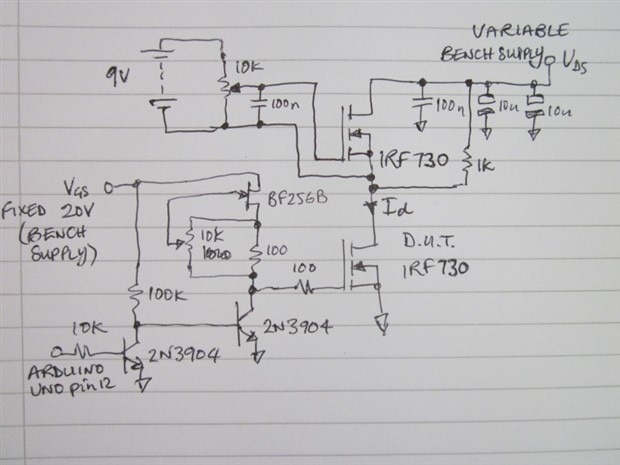 VARIABLE
BENCH SUPPLY
VDS
9V
10K
100n
100n
10u
10u
IRF 730
1K
VGS
FIXED 20V
(BENCH
SUPPLY)
BF256B
Id
10K
100
D.U.T.
IRF730
100
100K
10K
2N3904
2N3904
ARDUINO
UNO pin 12